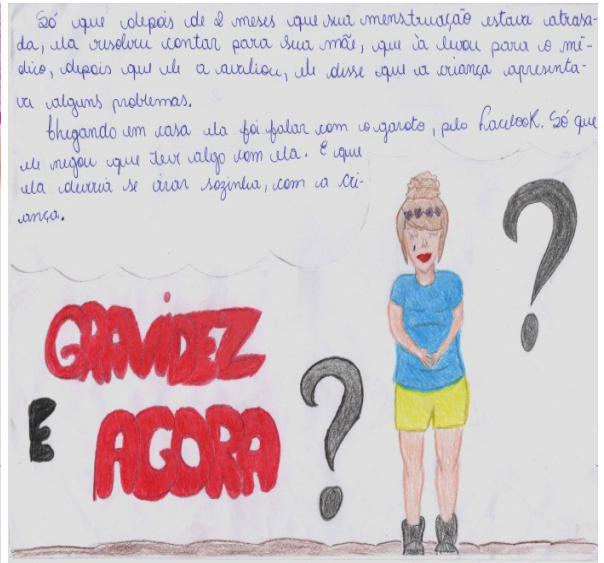 Só que depois de 2 meses que sua menstruação estava atrasa-
da, ela resolveu contar para sua mãe, que à levou para o mé-
dico, depois que ele a avaliou, ele disse que a criança apresenta-
va alguns problemas.
Chegando em casa ela foi falar com o garoto, pelo facebook. Só que
ele negou que teve algo com ela. E que
ela deveria se virar sozinha, com a cri-
ança.
GRAVIDEZ
E AGORA ?
?